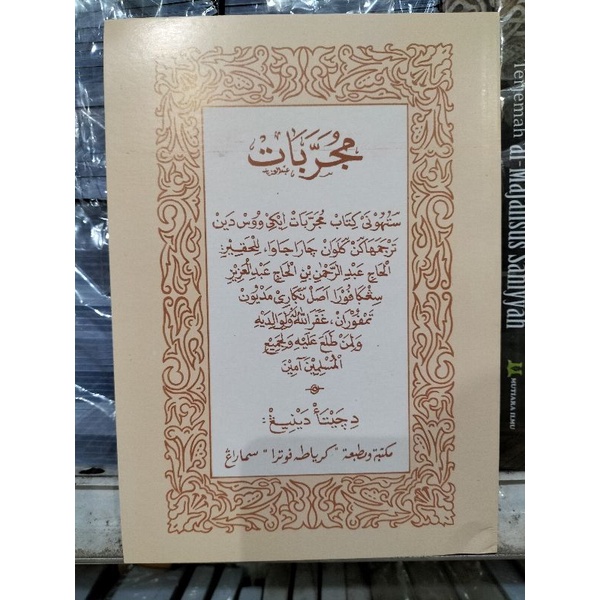 مُجَرَّبَات
سَتُهُوْنَىْ كِتَابْ مُجَرَّبَاتْ اِيْكِيْ وُوْسْ دَيْنْ
تَرْجَمَهَاكَنْ كَلَوَانْ چَارَا جَاوَاء، لِلْحَقِيْرِ:
الْحَاجْ عَبْدِ الرَّحْمٰنِ بْنِ الْحَاجْ عَبْدِ الْعَزِيْزِ
سِڠْكَافُوْرَا اَصَلْ نَڮَارِيْ مَدِيُوْنْ
تَمْفُوْرَانْ، غَفَرَ اللّٰهُ لَهُ وَلِوَالِدَيْهِ
وَلِمَنْ طَلَعَ عَلَيْهِ وَلِجَمِيْعِ
الْمُسْلِمِيْنَ آمِيْنَ
دِچَيْتَاءْ دَيْنِيْڠْ:
مكتبة ومطبعة "كرياطه فوترا" سماراڠ
Terjemah al-Majalisus Saniyyah
MUTIARA ILMU